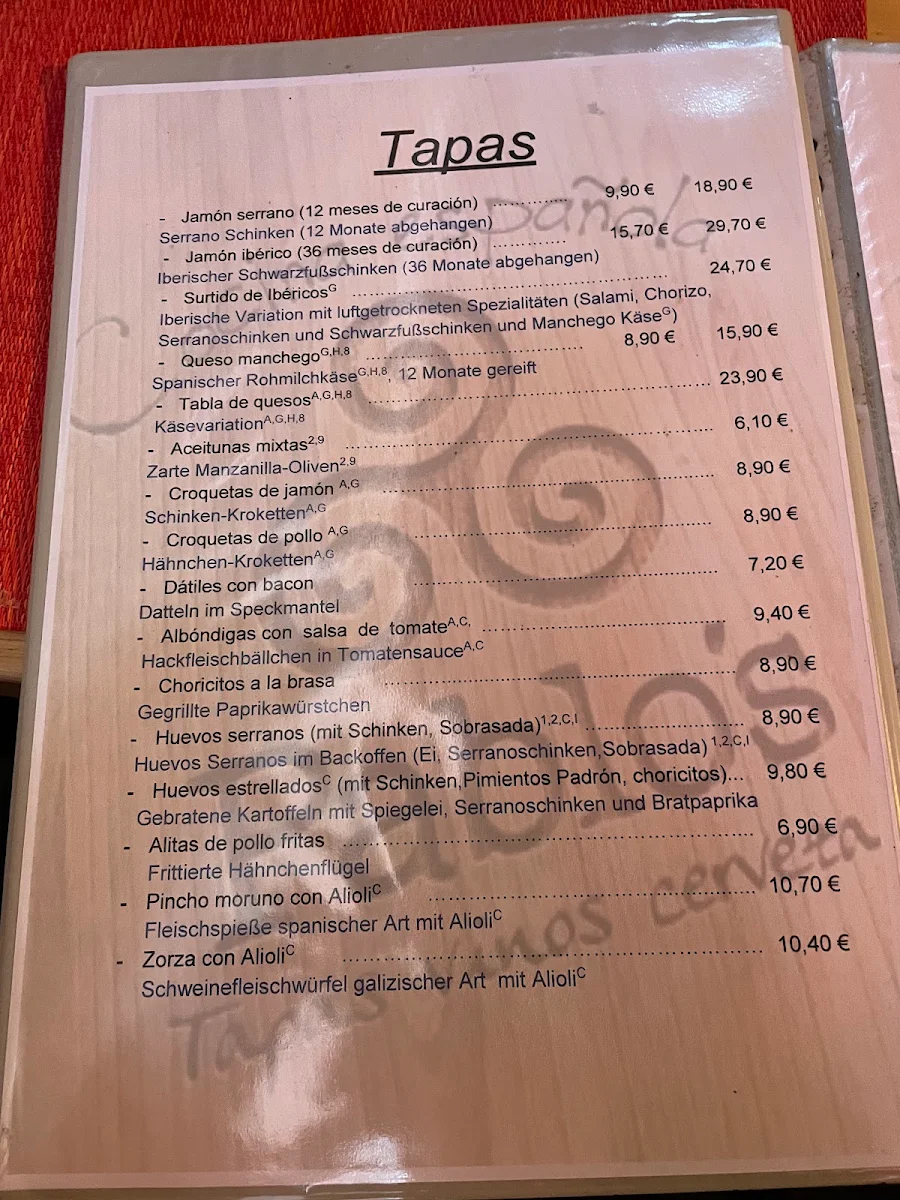 Tapas
- Jamón serrano (12 meses de curación) ............. 9,90 € 18,90 €
Serrano Schinken (12 Monate abgehangen)
- Jamón ibérico (36 meses de curación) ............. 15,70 € 29,70 €
Iberischer Schwarzfußschinken (36 Monate abgehangen)
- Surtido de IbéricosG ............. 24,70 €
Iberische Variation mit luftgetrockneten Spezialitäten (Salami, Chorizo,
Serranoschinken und Schwarzfußschinken und Manchego KäseG)
- Queso manchegoG,H,8 ............. 8,90 € 15,90 €
Spanischer RohmilchkäseG,H,8, 12 Monate gereift
- Tabla de quesosA,G,H,8 ............. 23,90 €
KäsevariationA,G,H,8
- Aceitunas mixtas2,9 ............. 6,10 €
Zarte Manzanilla-Oliven2,9
- Croquetas de jamón A,G ............. 8,90 €
Schinken-KrokettenA,G
- Croquetas de pollo A,G ............. 8,90 €
Hähnchen-KrokettenA,G
- Dátiles con bacon ............. 7,20 €
Datteln im Speckmantel
- Albóndigas con salsa de tomateA,C, ............. 9,40 €
Hackfleischbällchen in TomatensauceA,C
- Choricitos a la brasa ............. 8,90 €
Gegrillte Paprikawürstchen
- Huevos serranos (mit Schinken, Sobrasada)1,2,C,I ............. 8,90 €
Huevos Serranos im Backoffen (Ei, Serranoschinken,Sobrasada) 1,2,C,I
- Huevos estrelladosC (mit Schinken,Pimientos Padrón, choricitos)... 9,80 €
Gebratene Kartoffeln mit Spiegelei, Serranoschinken und Bratpaprika
- Alitas de pollo fritas ............. 6,90 €
Frittierte Hähnchenflügel
- Pincho moruno con AlioliC ............. 10,70 €
Fleischspieße spanischer Art mit AlioliC
- Zorza con AlioliC ............. 10,40 €
Schweinefleischwürfel galizischer Art mit AlioliC
española
Pablo's
Tapas vinos cerveta